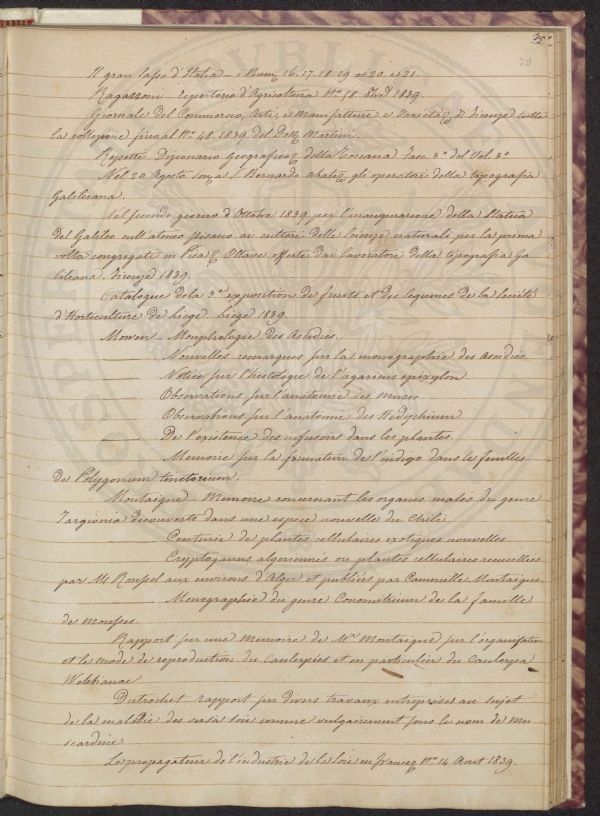 35
39
Il gran Sasso d'Italia - i Num. 16. 17. 18. 19 e 20. e 21.
Ragazzoni repertorio d'Agricoltura N.° 18. 1839.
Giornale del Commercio, Arti, e Manifatture e Varietà di Firenze tutta
la collezione fino al N.° 48. 1839 del Dott. Martini.
Repetti Dizionario Geografico della Toscana Fasc. 3.° del Vol. 3.°
Nel 20 Agosto Bernardo gli operatori della tipografia
Galileiana.
Nel secondo giorno d'Ottobre 1839 per l'inaugurazione della Statua
del Galileo nell'ateneo pisano ai cultori delle Scienze naturali per la prima
volta congregati in Pisa Ottave offerte dai lavoratori della tipografia Ga
lileana. Firenze 1839.
Catalogue de la 3.e exposition de fruits et des legumes de la Société
d'Horticulture de Liege. Liege 1839.
Morren - Morphologie des Ascidies.
Nouvelles remarques sur la monographie des Ascidies
Notice sur l'histologie de l'agaricus epixylon
Observations sur l'anatomie des Muses.
Observations sur l'anatomie des Hedychium
De l'existence des infusoirs dans les plantes.
Memoire sur la formation de l'indigo dans les feuilles
de Polygonum tinctorium.
Montaigne - Memoire concernant les organes males du genre
Targionia decouverts dans une espece nouvelle du Chili
Centurie de plantes cellulaires exotiques nouvelles
Cryptogames algeriennes ou plantes cellulaires recueillies
par M. Roussel aux environs d'Alger et publiées par Camille Montaigne
Monographie du genre Conomitrium de la famille
de mousses.
Rapport sur une Memoire de M.r Montaigne sur l'organisation
et le mode de reproduction du Caulerpées et en particulier du Caulerpa
Webbiana
Dutrochet rapport sur divers travaux entreprises au sujet
de la maladie des vers à soie connue vulgairement sous le nom de Mu
scardine
Le propagateur de l'industrie de la Soie en France N.° 14 Aout 1839.